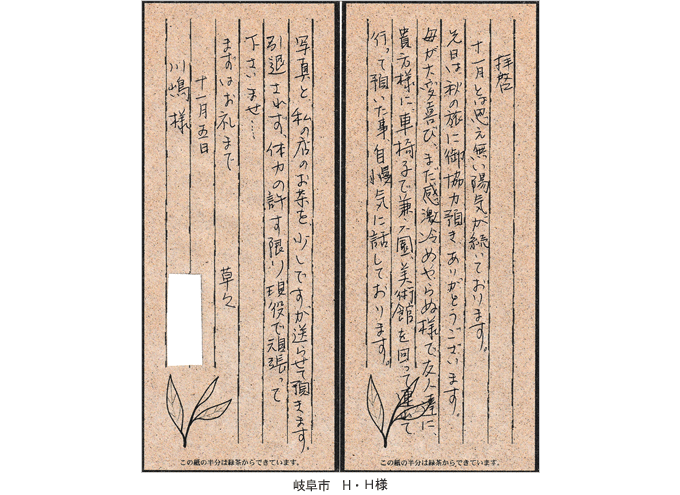 拝啓
十一月とは思え無い陽気が続いております。
先日は、秋の旅に御協力預き、ありがとうございます。
母が大変喜び、まだ感激冷めやらぬ様で、友人達に
貴方様に、車椅子で兼六園、美術館を回って連れて
行って預いた事、自慢気に話しております。
この紙の半分は緑茶からできています。
写真と、私の店のお茶を、少しですが送らせて預きます。
引退されず、体力の許す限り現役で頑張って
下さいませ…。
まずはお礼まで
草々
十一月五日
川嶋様
この紙の半分は緑茶からできています。
岐阜市 H・H様